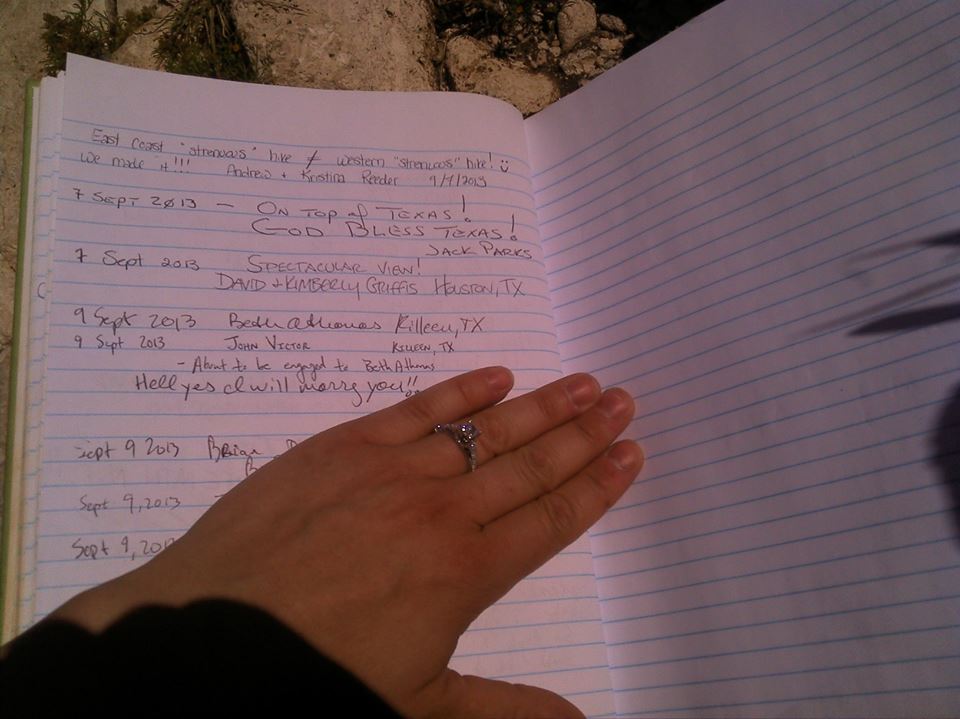 East coast "strenuous" hike ≠ western "strenuous" hike! :)
We made it!!! Andrew + Kristina Reeder 9/7/2013
7 SEPT 2013 — ON TOP of TEXAS!
GOD BLESS TEXAS!
JACK PARKS
7 Sept 2013 SPECTACULAR VIEW!
DAVID + KIMBERLY GRIFFIS HOUSTON, TX
9 Sept 2013 Beth Athomas Killeen, TX
9 Sept 2013 JOHN VICTOR KILLEEN, TX
- About to be engaged to Beth Athomas
Hell yes I will marry you!!
Sept 9 2013 Brian
Sept 9, 2013
Sept 9, 2013